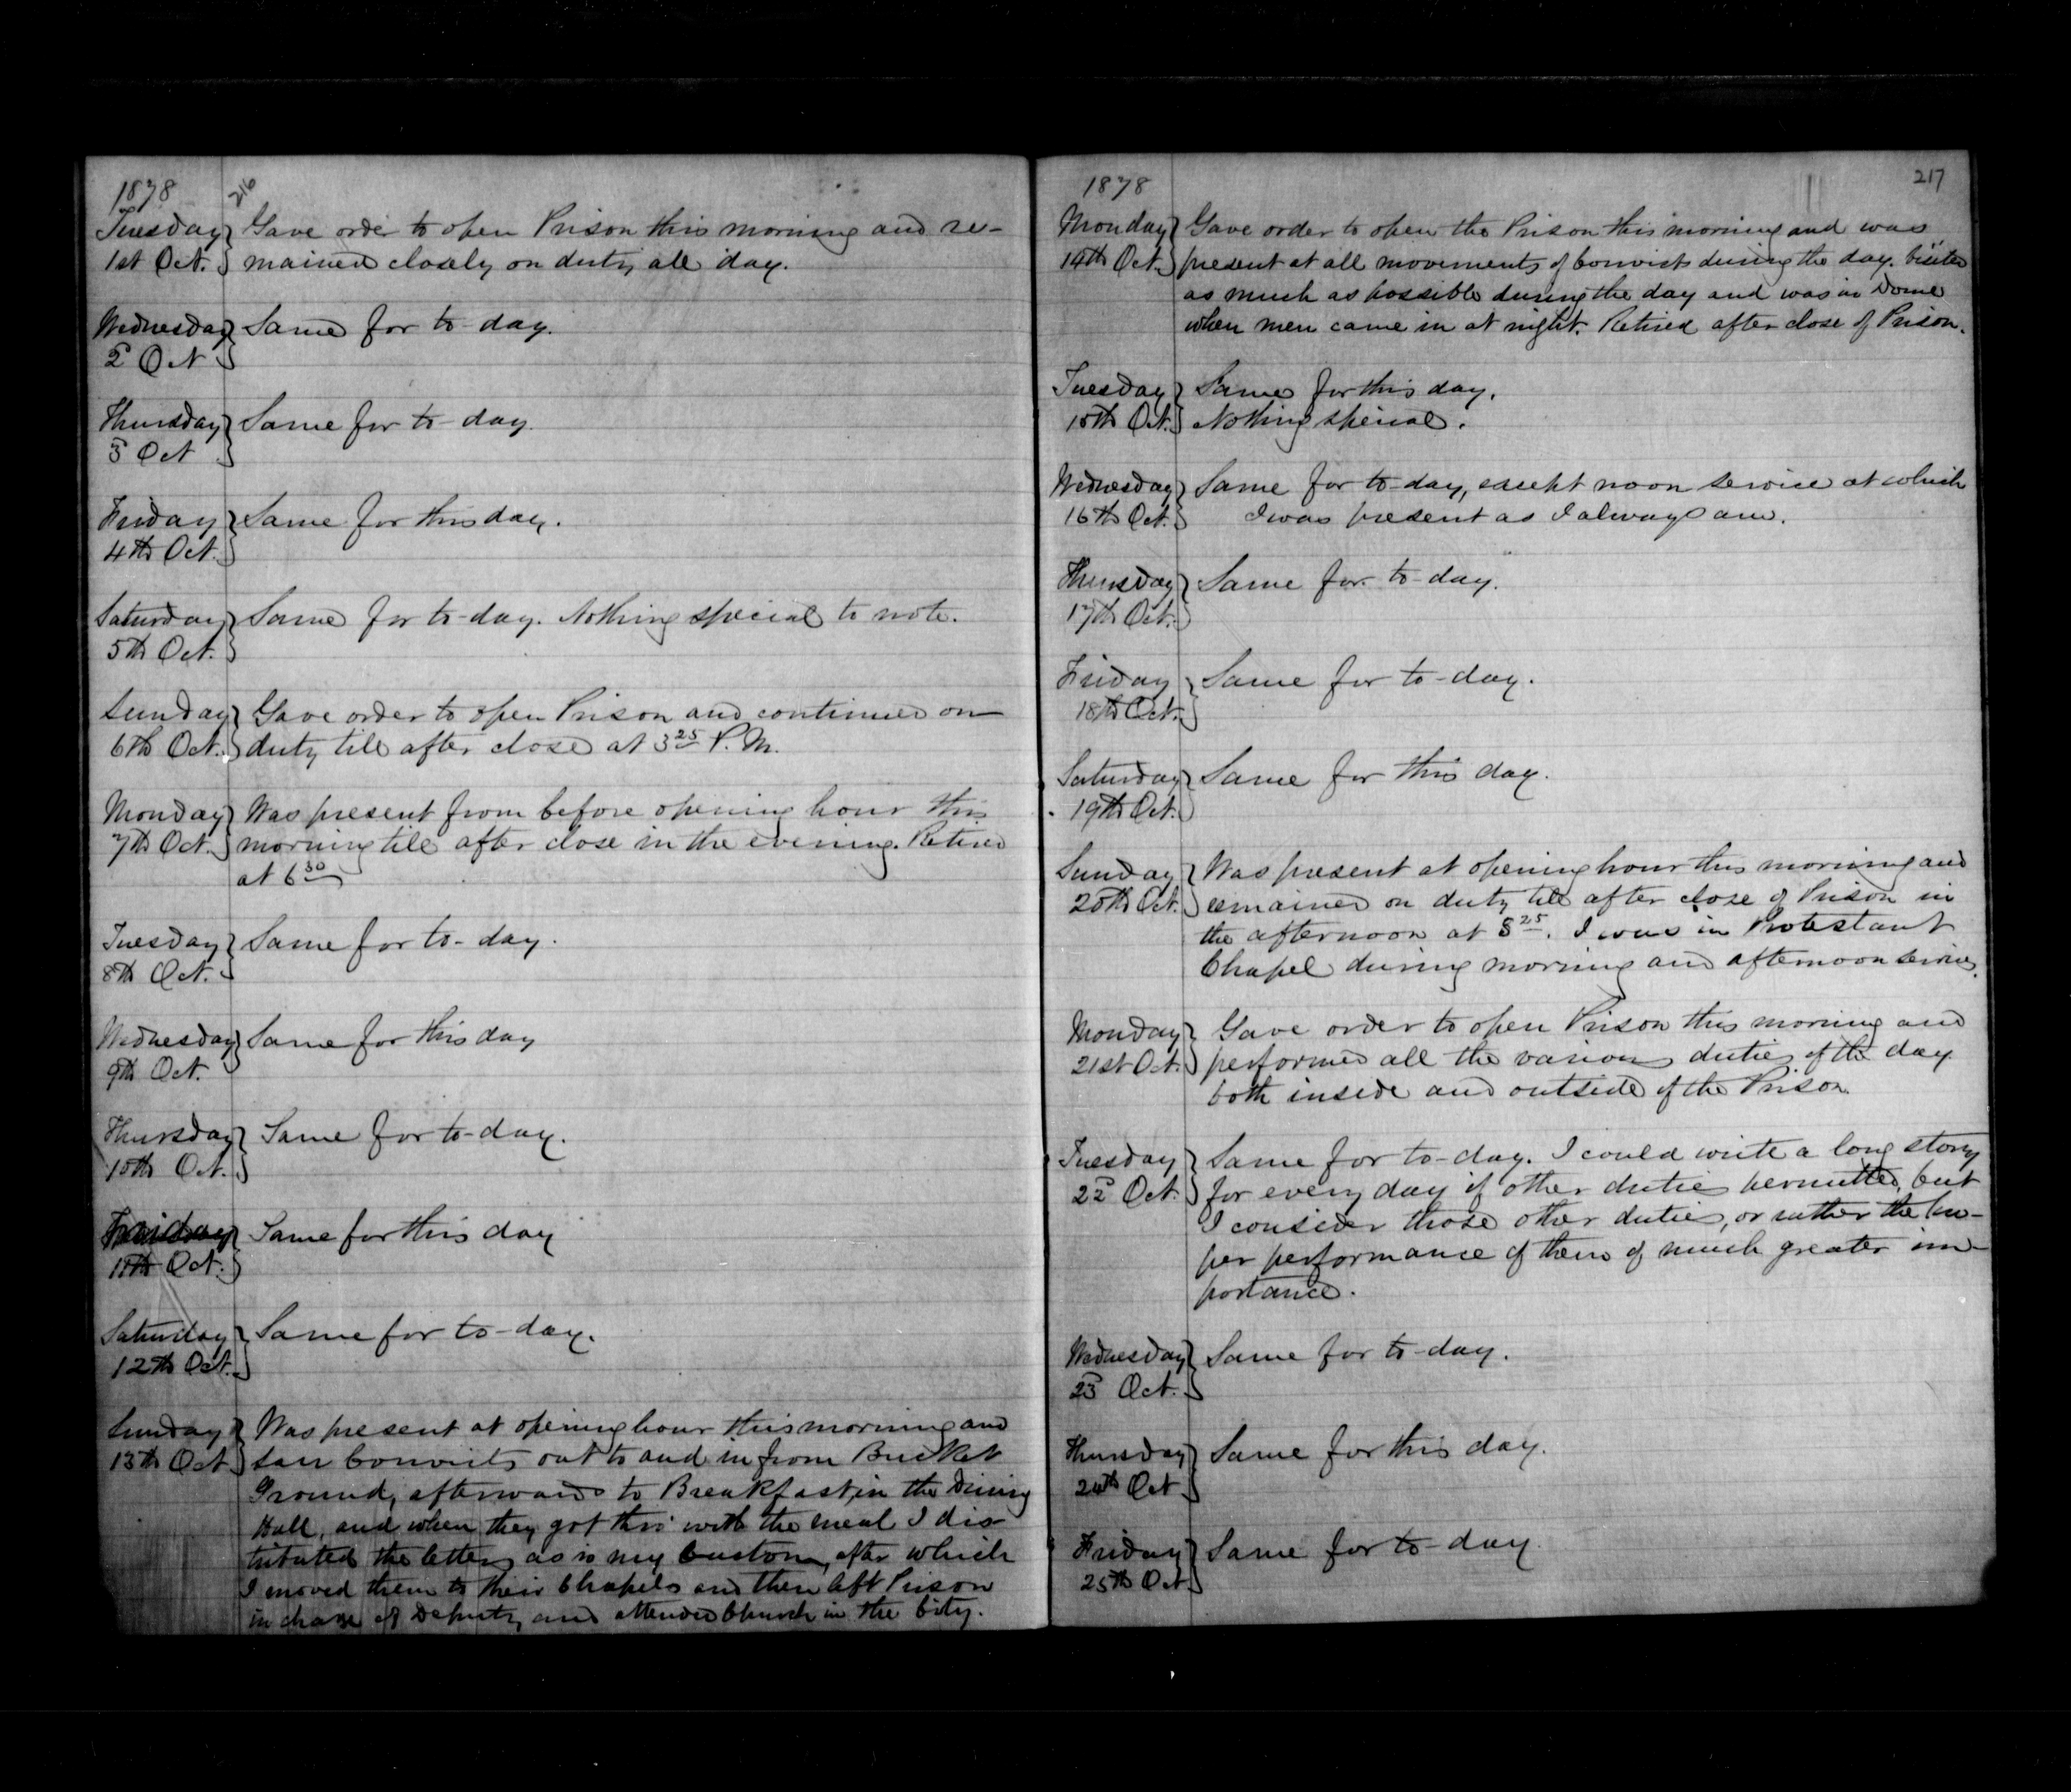 1878
216
Tuesday Gave order to open Prison this morning and re-
1st Oct. mained closely on duty all day.
Wednesday Same for to-day.
2d Oct
Thursday Same for to-day.
3d Oct
Friday Same for this day.
4th Oct.
Saturday Same for to-day. Nothing special to note.
5th Oct.
Sunday Gave order to open Prison and continued on
6th Oct. duty till after close at 3 25 P.M.
Monday Was present from before opening hour this
7th Oct. morning till after close in the evening. Retired
at 6 30
Tuesday Same for to-day.
8th Oct.
Wednesday Same for this day
9th Oct.
Thursday Same for to-day.
10th Oct.
Friday Same for this day
11th Oct.
Saturday Same for to-day.
12th Oct.
Sunday Was present at opening hour this morning and
13th Oct saw Convicts out to and in from Bucket
Ground, afterwards to Breakfast, in the Dining
Hall, and when they got thro' with the meal I dis-
tributed the letters as is my Custom, after which
I moved them to their Chapels and then left Prison
in charge of Deputy and attended Church in the City.
1878
217
Monday Gave order to open the Prison this morning and was
14th Oct. present at all movements of Convicts during the day. Visited
as much as possible during the day and was in Dome
when men came in at night. Retired after close of Prison.
Tuesday Same for this day.
15th Oct. Nothing special.
Wednesday Same for to-day, except noon service at which
16th Oct. I was present as I always am.
Thursday Same for to-day.
17th Oct.
Friday Same for to-day.
18th Oct.
Saturday Same for this day.
19th Oct.
Sunday Was present at opening hour this morning and
20th Oct. remained on duty till after close of Prison in
the afternoon at 3 25. I was in Protestant
Chapel during morning and afternoon services.
Monday Gave order to open Prison this morning and
21st Oct. performed all the various duties of the day
both inside and outside of the Prison.
Tuesday Same for to-day. I could write a long story
22d Oct. for every day if other duties permitted, but
I consider those other duties, or rather the pro-
per performance of them of much greater im-
portance.
Wednesday Same for to-day.
23d Oct.
Thursday Same for this day.
24th Oct
Friday Same for to-day.
25th Oct